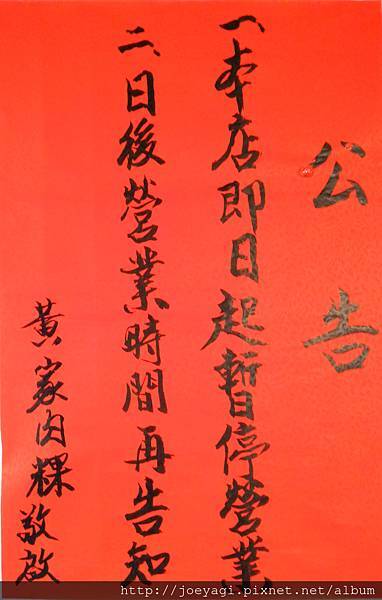 公告
一、本店即日起暫停營業
二、日後營業時間再告知
黃家肉粿敬啟
http://joeyagi.pixnet.net/album